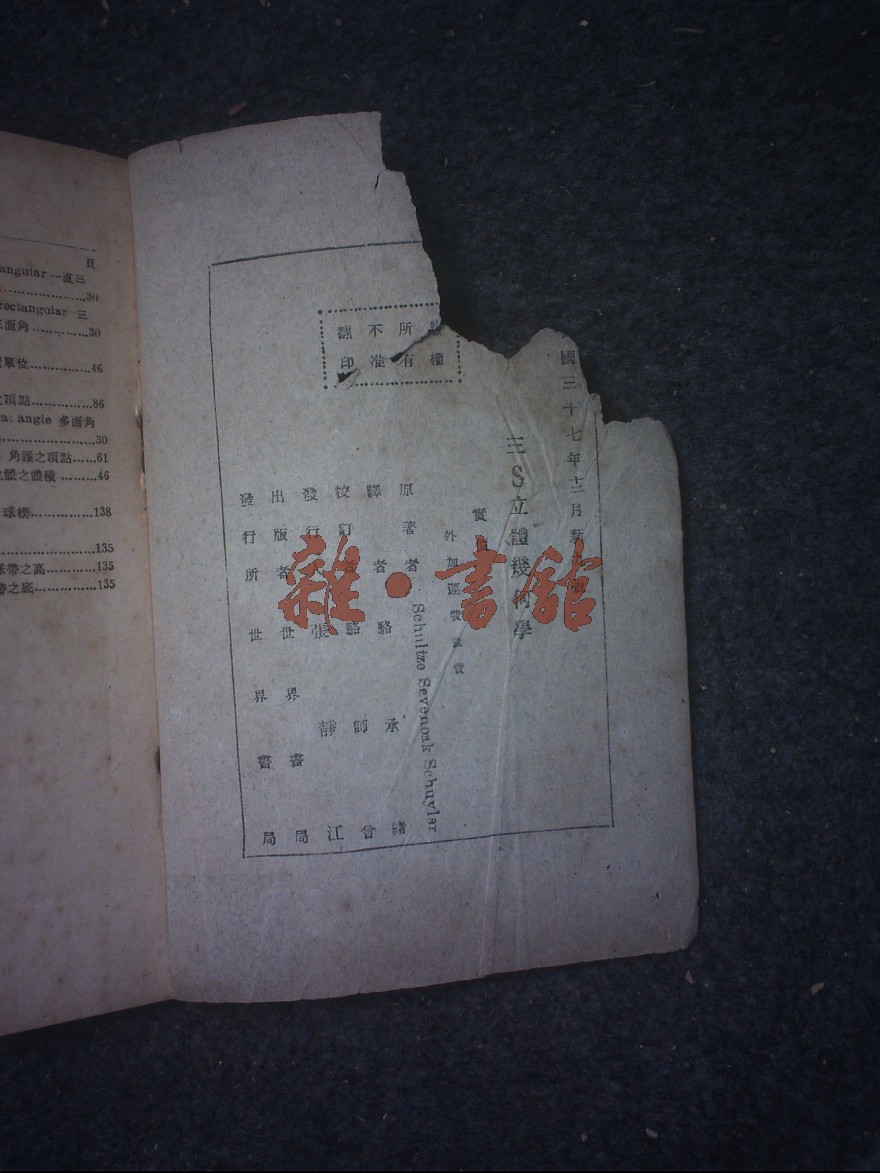 頁
angular 一直三
30
rectangular 三
三面角 30
單位 46
之頂點 86
angle 多面角
30
角錐之頂點 61
之體積 46
球楔 138
135
球帶之高 135
帶之底 135
國三十七年十二月新
三S立體幾何學
實
外加運費
所有權
不准
翻印
原著者 Schultze Sevenoak Schuylar
譯者 駱承緒
校訂者 駱師曾
發行 張靜江
出版者 世界書局
發行所 世界書局
雜·書館